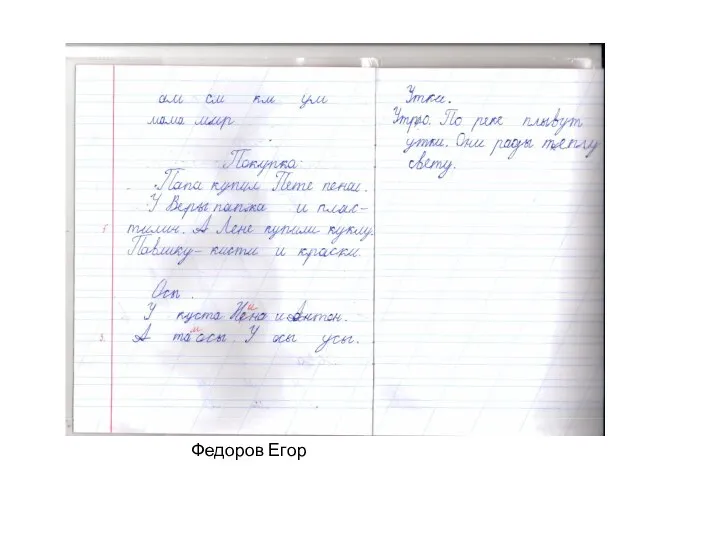 ам см км ум
мама мир
Покупка
Папа купил Пете пенал.
У Веры папка и плас-
тилин. А Лене купили куклу.
Павлику - кисти и краски.
Осы.
У куста Нина и Антон.
А там осы. У осы усы.
Утки.
Утро. По реке плывут
утки. Они рады теплу
свету.
Федоров Егор